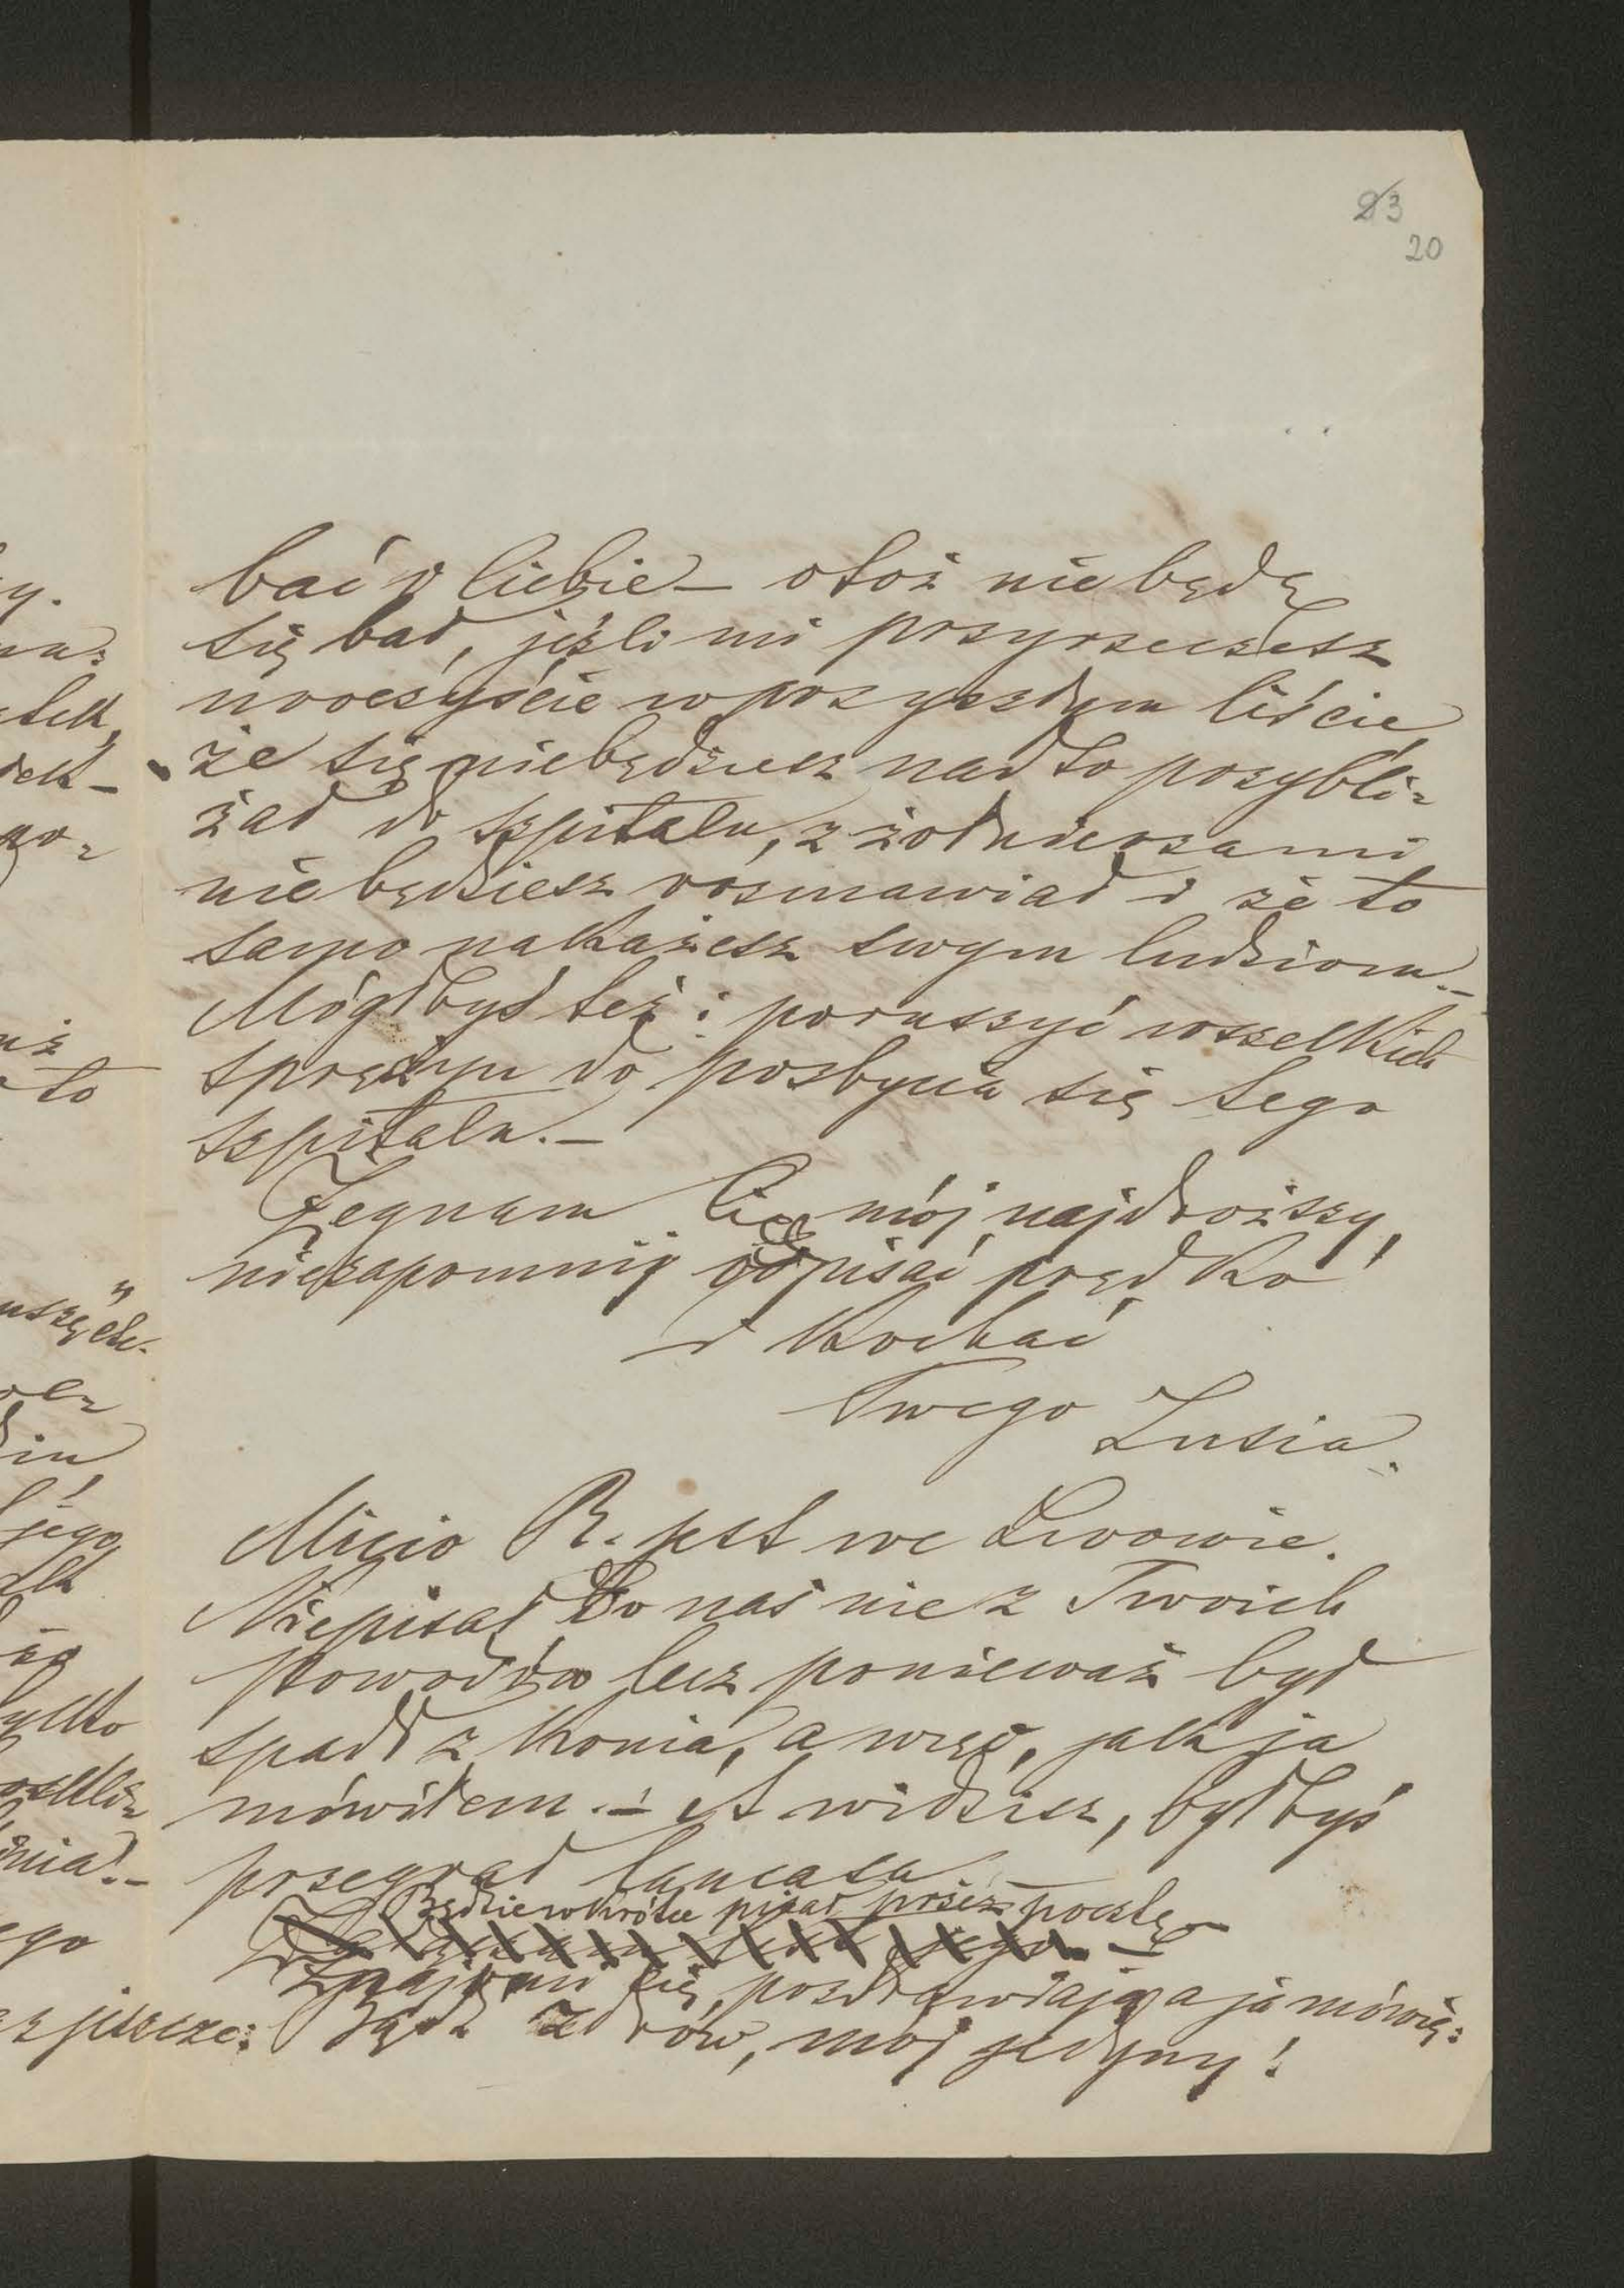 23
20
bać o Ciebie — otoż nie będę
się bał, jeżli mi przyrzeczesz
uroczyście w przyszłym liście
że się niebędziesz nadto przybli=
żał do szpitalu, z żołnierzami
nie będziesz rozmawiał i że to
samo nakażesz swym ludziom. —
Mógłbyś też i poruszyć wszelkich
sprężyn do pozbycia się tego
szpitalu. —
Żegnam Cię mój najdroższy,
niezapomnij odpisać prędko!
i kochać
Twego Lusia.
Micio R. jest we Lwowie.
Niepisał do nas nie z Twoich
powodów lecz ponieważ był
spadł z konia, a więc, jak ja
mówiłem. — A widzisz, byłbyś
przegrał
Będzie wkrótce pisał przez pocztę —
Znajomi Cię pozdrawiają a ja mówię:
Bądź zdrów, mój jedyny!